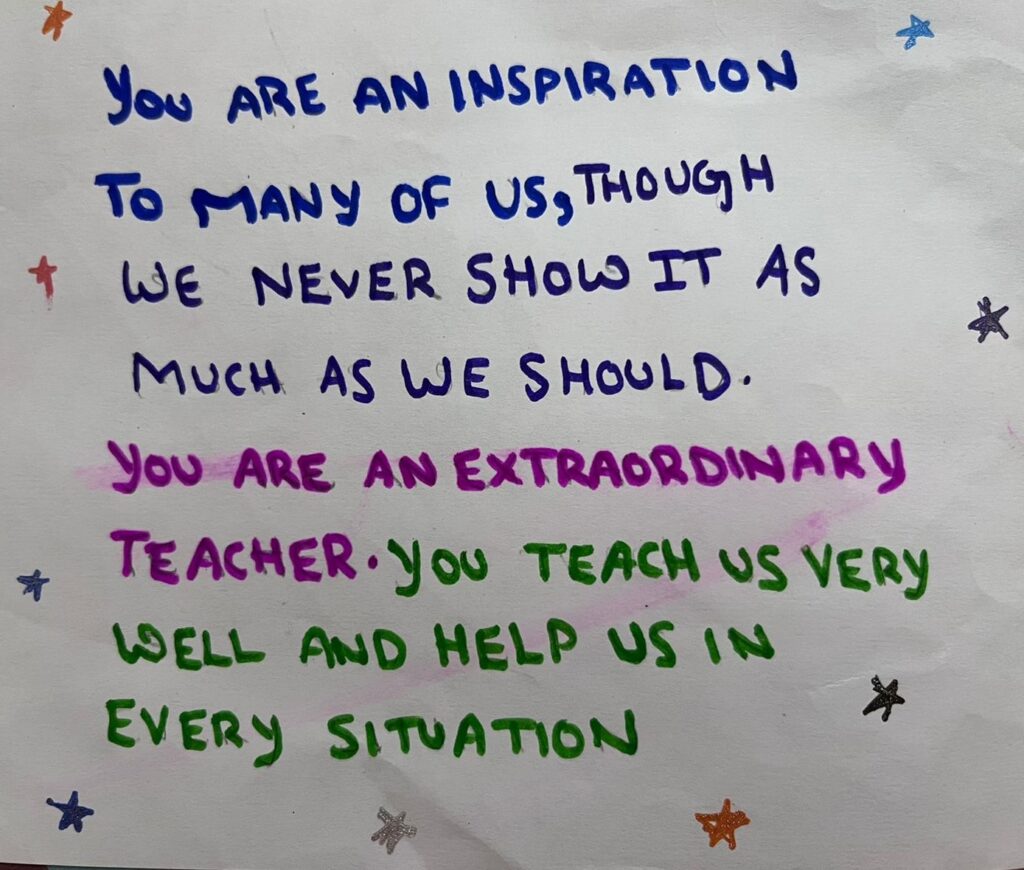 YOU ARE AN INSPIRATION
TO MANY OF US, THOUGH
WE NEVER SHOW IT AS
MUCH AS WE SHOULD.
YOU ARE AN EXTRAORDINARY
TEACHER. YOU TEACH US VERY
WELL AND HELP US IN
EVERY SITUATION